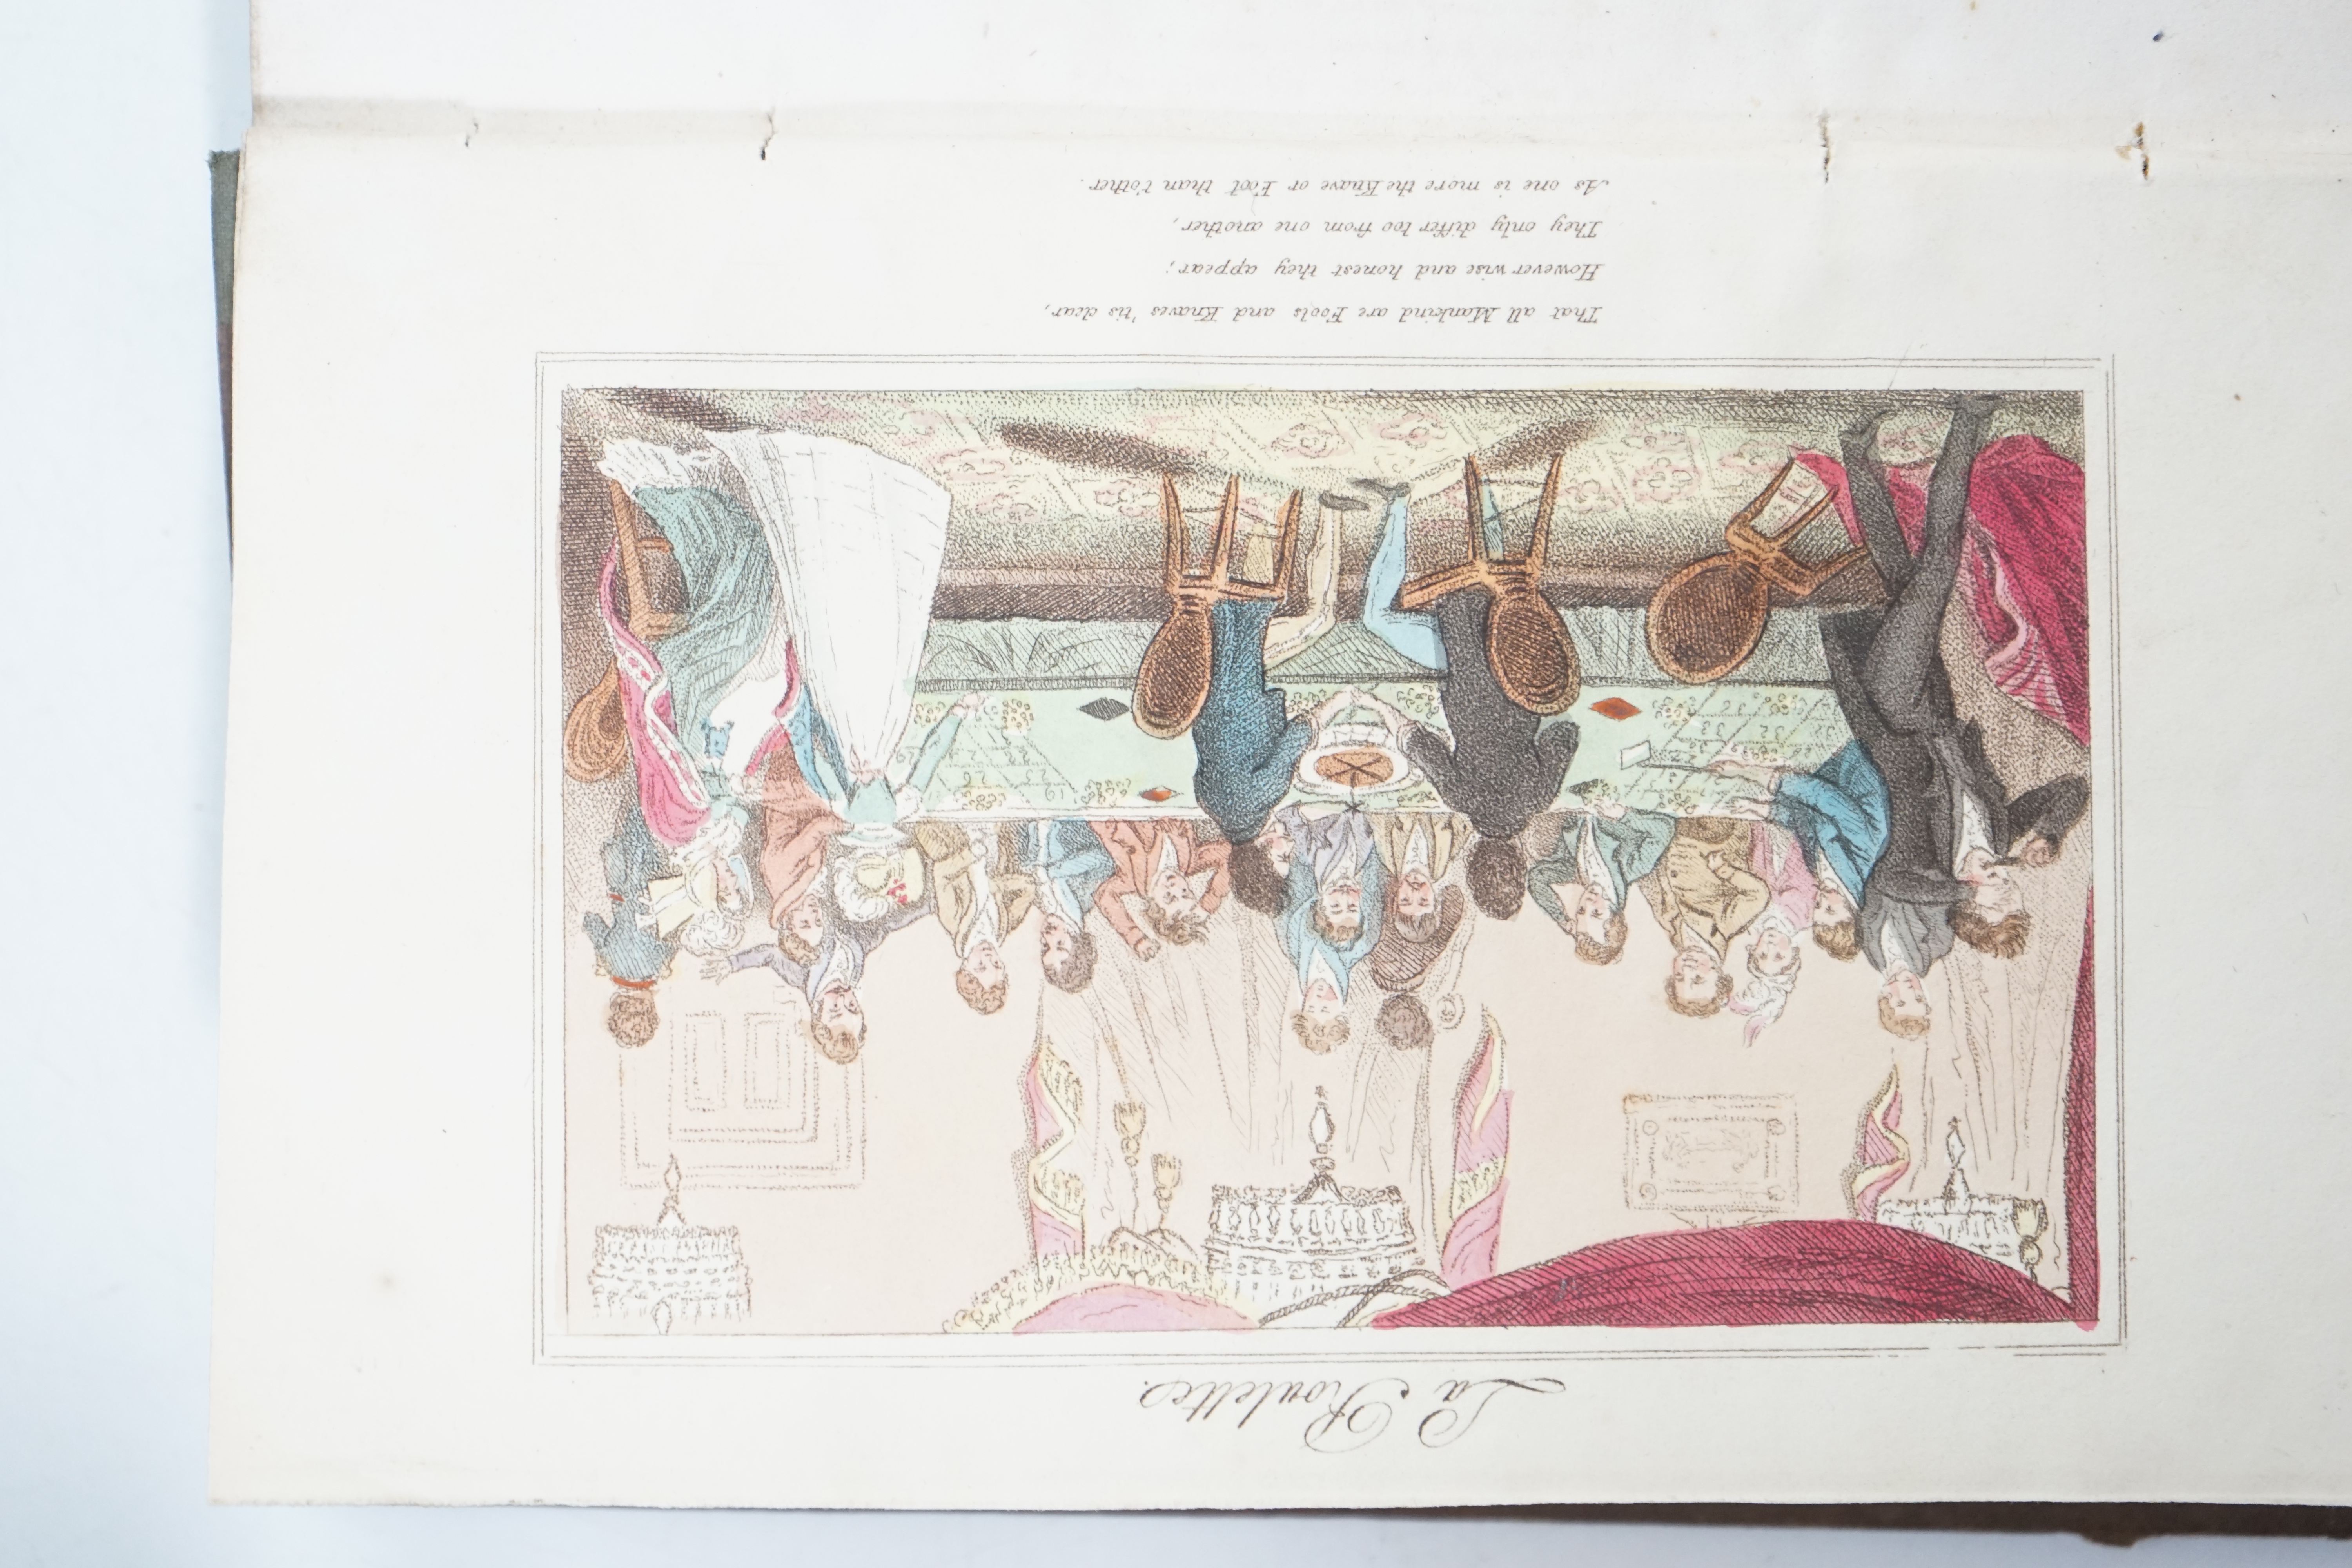 La Roulette.
That all Mankind are Fools and Knaves 'tis clear,
However wise and honest they appear;
They only differ too from one another,
As one is more the Knave or Fool than t'other.